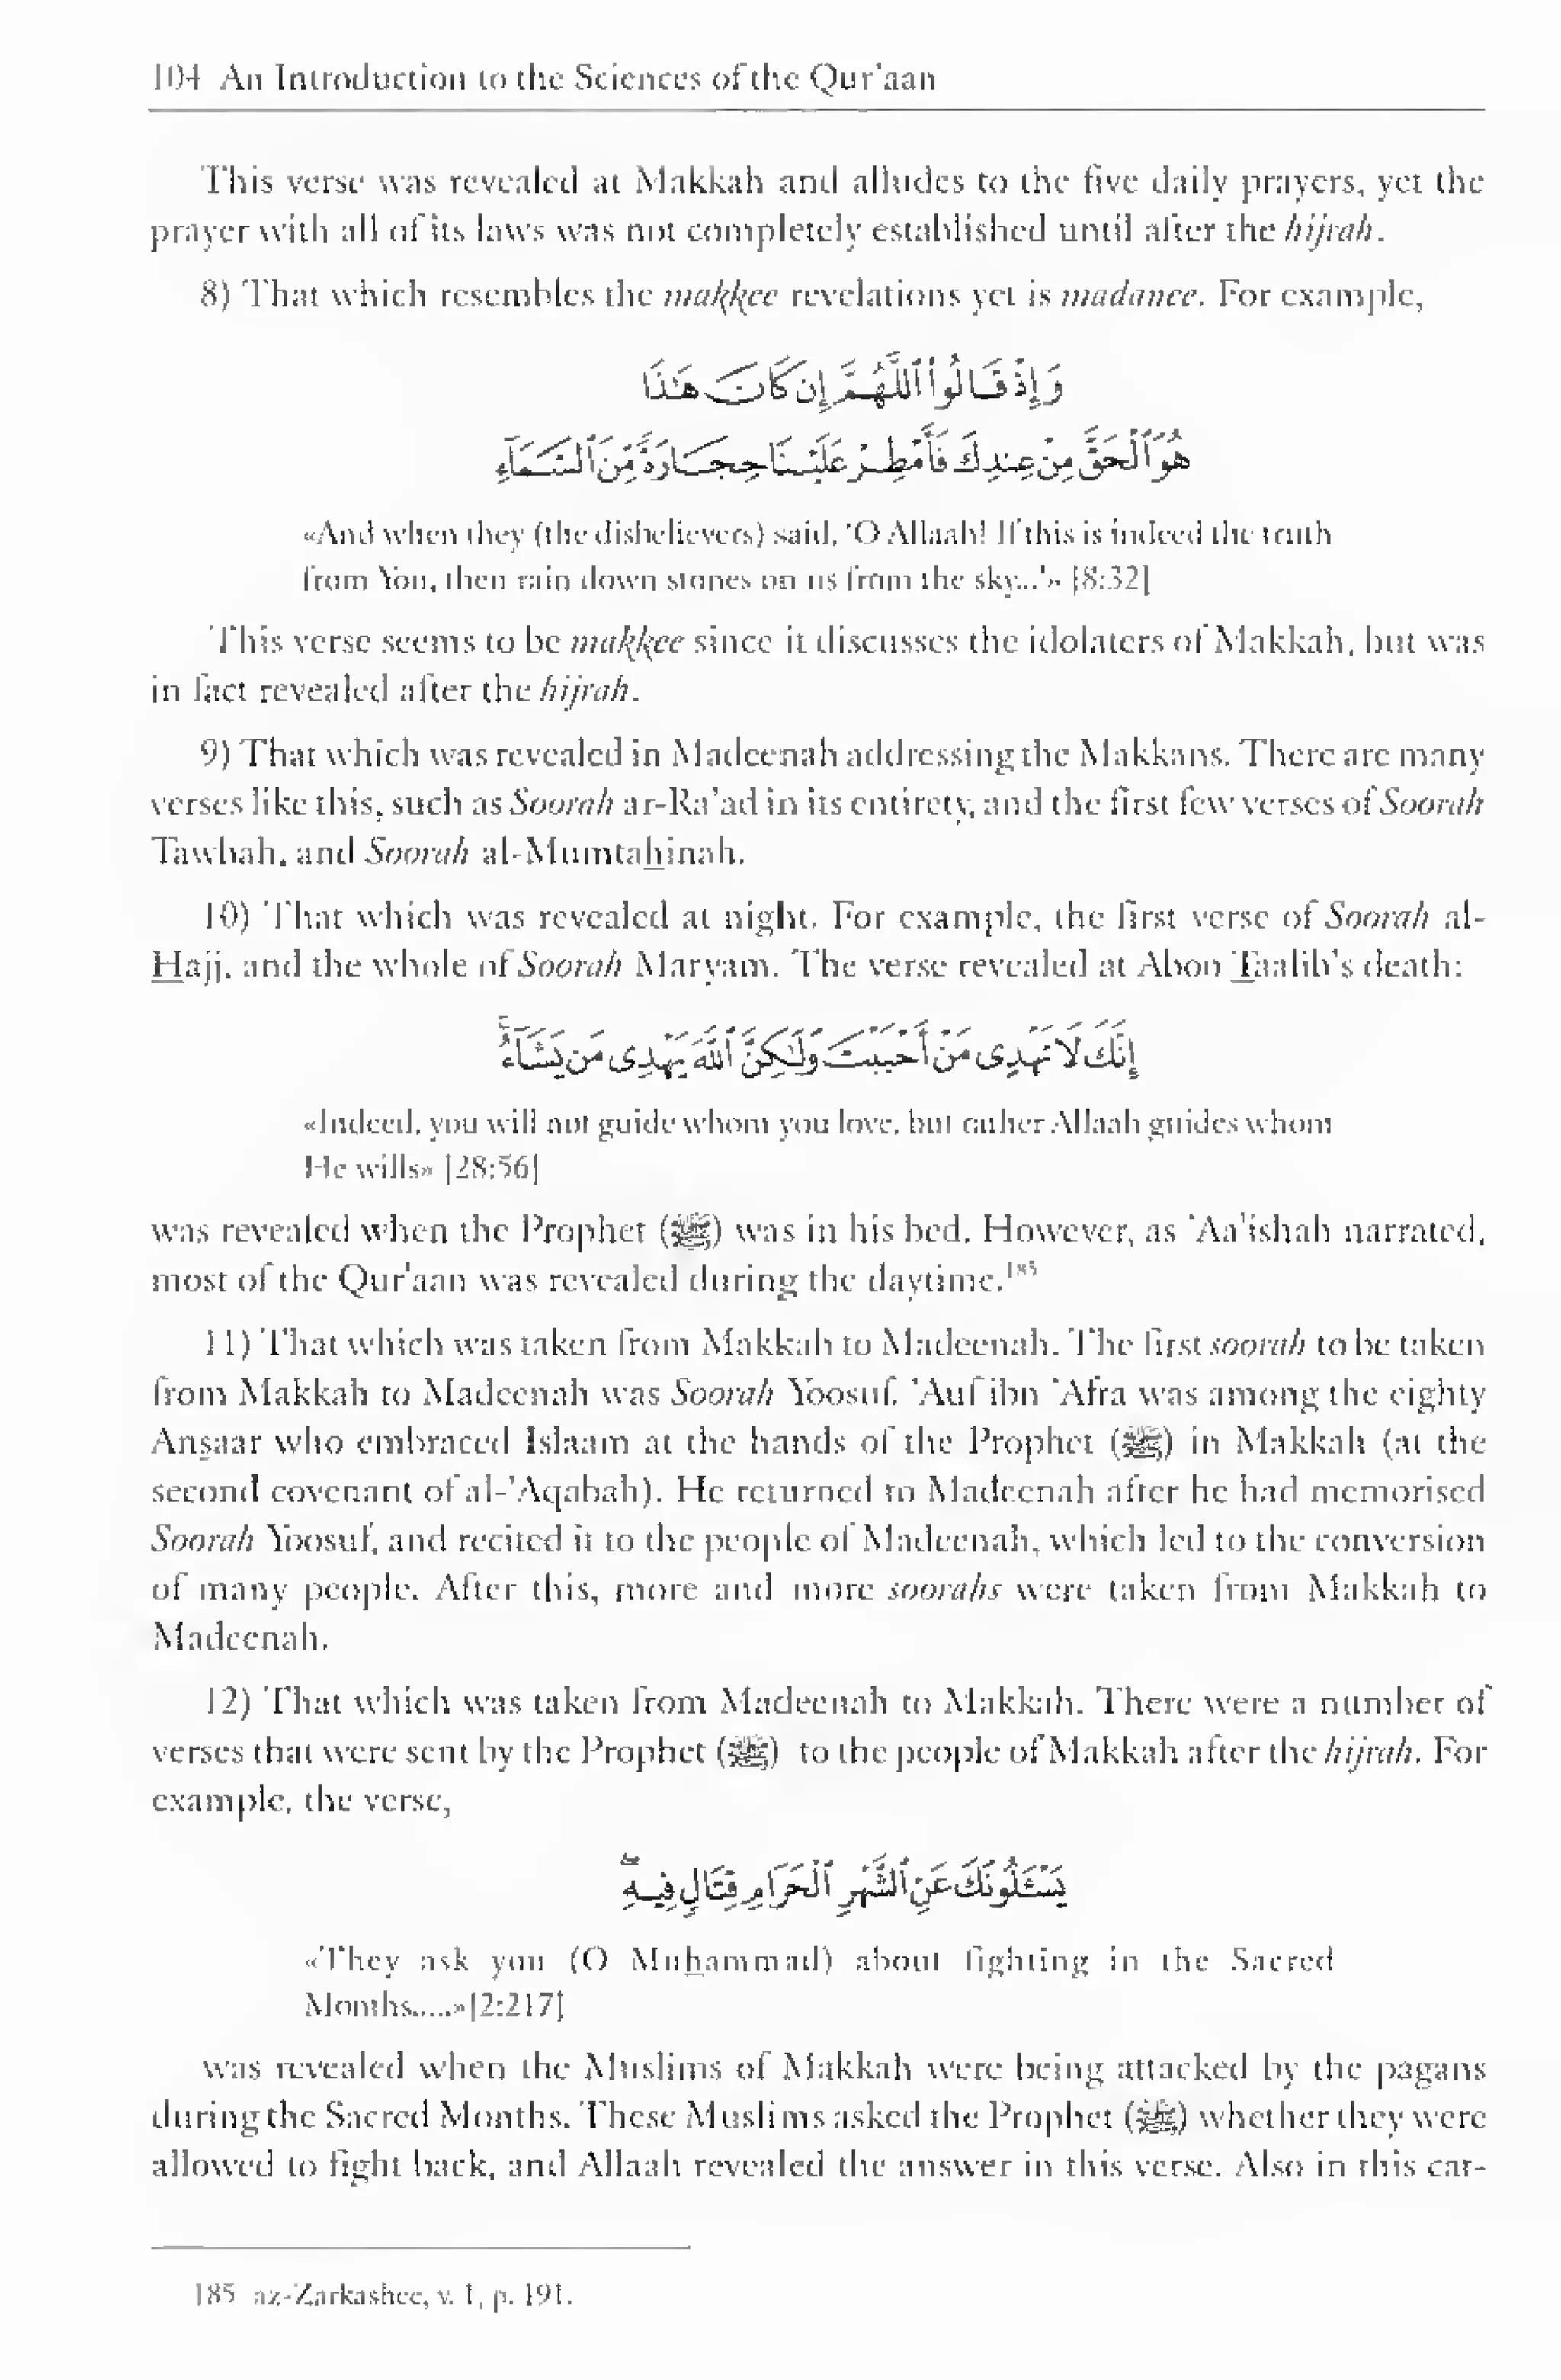 104 An Introduction to the Sciences of the Qur'aan
This verse was revealed at Makkah and alludes to the five daily prayers, yet the
prayer with all of its laws was not completely established until after the hijrah.
8) That which resembles the makkee revelations yet is madanee. For example,
وَإِذْ قَالُوا۟ ٱللَّهُمَّ إِن كَانَ هَـٰذَا
هُوَ ٱلْحَقَّ مِنْ عِندِكَ فَأَمْطِرْ عَلَيْنَا حِجَارَةً مِّنَ ٱلسَّمَآءِ
«And when they (the disbelievers) said, 'O Allaah! If this is indeed the truth
from You, then rain down stones on us from the sky...'» [8:32]
This verse seems to be makkee since it discusses the idolaters of Makkah, but was
in fact revealed after the hijrah.
9) That which was revealed in Madeenah addressing the Makkans. There are many
verses like this, such as Soorah ar-Ra'ad in its entirety, and the first few verses of Soorah
Tawbah, and Soorah al-Mumtahinah.
10) That which was revealed at night. For example, the first verse of Soorah al-
Hajj, and the whole of Soorah Maryam. The verse revealed at Aboo Taalib's death:
إِنَّكَ لَا تَهْدِى مَنْ أَحْبَبْتَ وَلَـٰكِنَّ ٱللَّهَ يَهْدِى مَن يَشَآءُ ۚ
«Indeed, you will not guide whom you love, but rather Allaah guides whom
He wills» [28:56]
was revealed when the Prophet (ﷺ) was in his bed. However, as 'Aa'ishah narrated,
most of the Qur'aan was revealed during the daytime.185
11) That which was taken from Makkah to Madeenah. The first soorah to be taken
from Makkah to Madeenah was Soorah Yoosuf. 'Auf ibn 'Afra was among the eighty
Ansaar who embraced Islaam at the hands of the Prophet (ﷺ) in Makkah (at the
second covenant of al-'Aqabah). He returned to Madeenah after he had memorised
Soorah Yoosuf, and recited it to the people of Madeenah, which led to the conversion
of many people. After this, more and more soorahs were taken from Makkah to
Madeenah.
12) That which was taken from Madeenah to Makkah. There were a number of
verses that were sent by the Prophet (ﷺ) to the people of Makkah after the hijrah. For
example, the verse,
يَسْـَٔلُونَكَ عَنِ ٱلشَّهْرِ ٱلْحَرَامِ قِتَالٍ فِيهِ ۖ
«They ask you (O Muhammad) about fighting in the Sacred
Months.....»[2:217]
was revealed when the Muslims of Makkah were being attacked by the pagans
during the Sacred Months. These Muslims asked the Prophet (ﷺ) whether they were
allowed to fight back, and Allaah revealed the answer in this verse. Also in this cat-
185 az-Zarkashee, v. 1, p. 191.